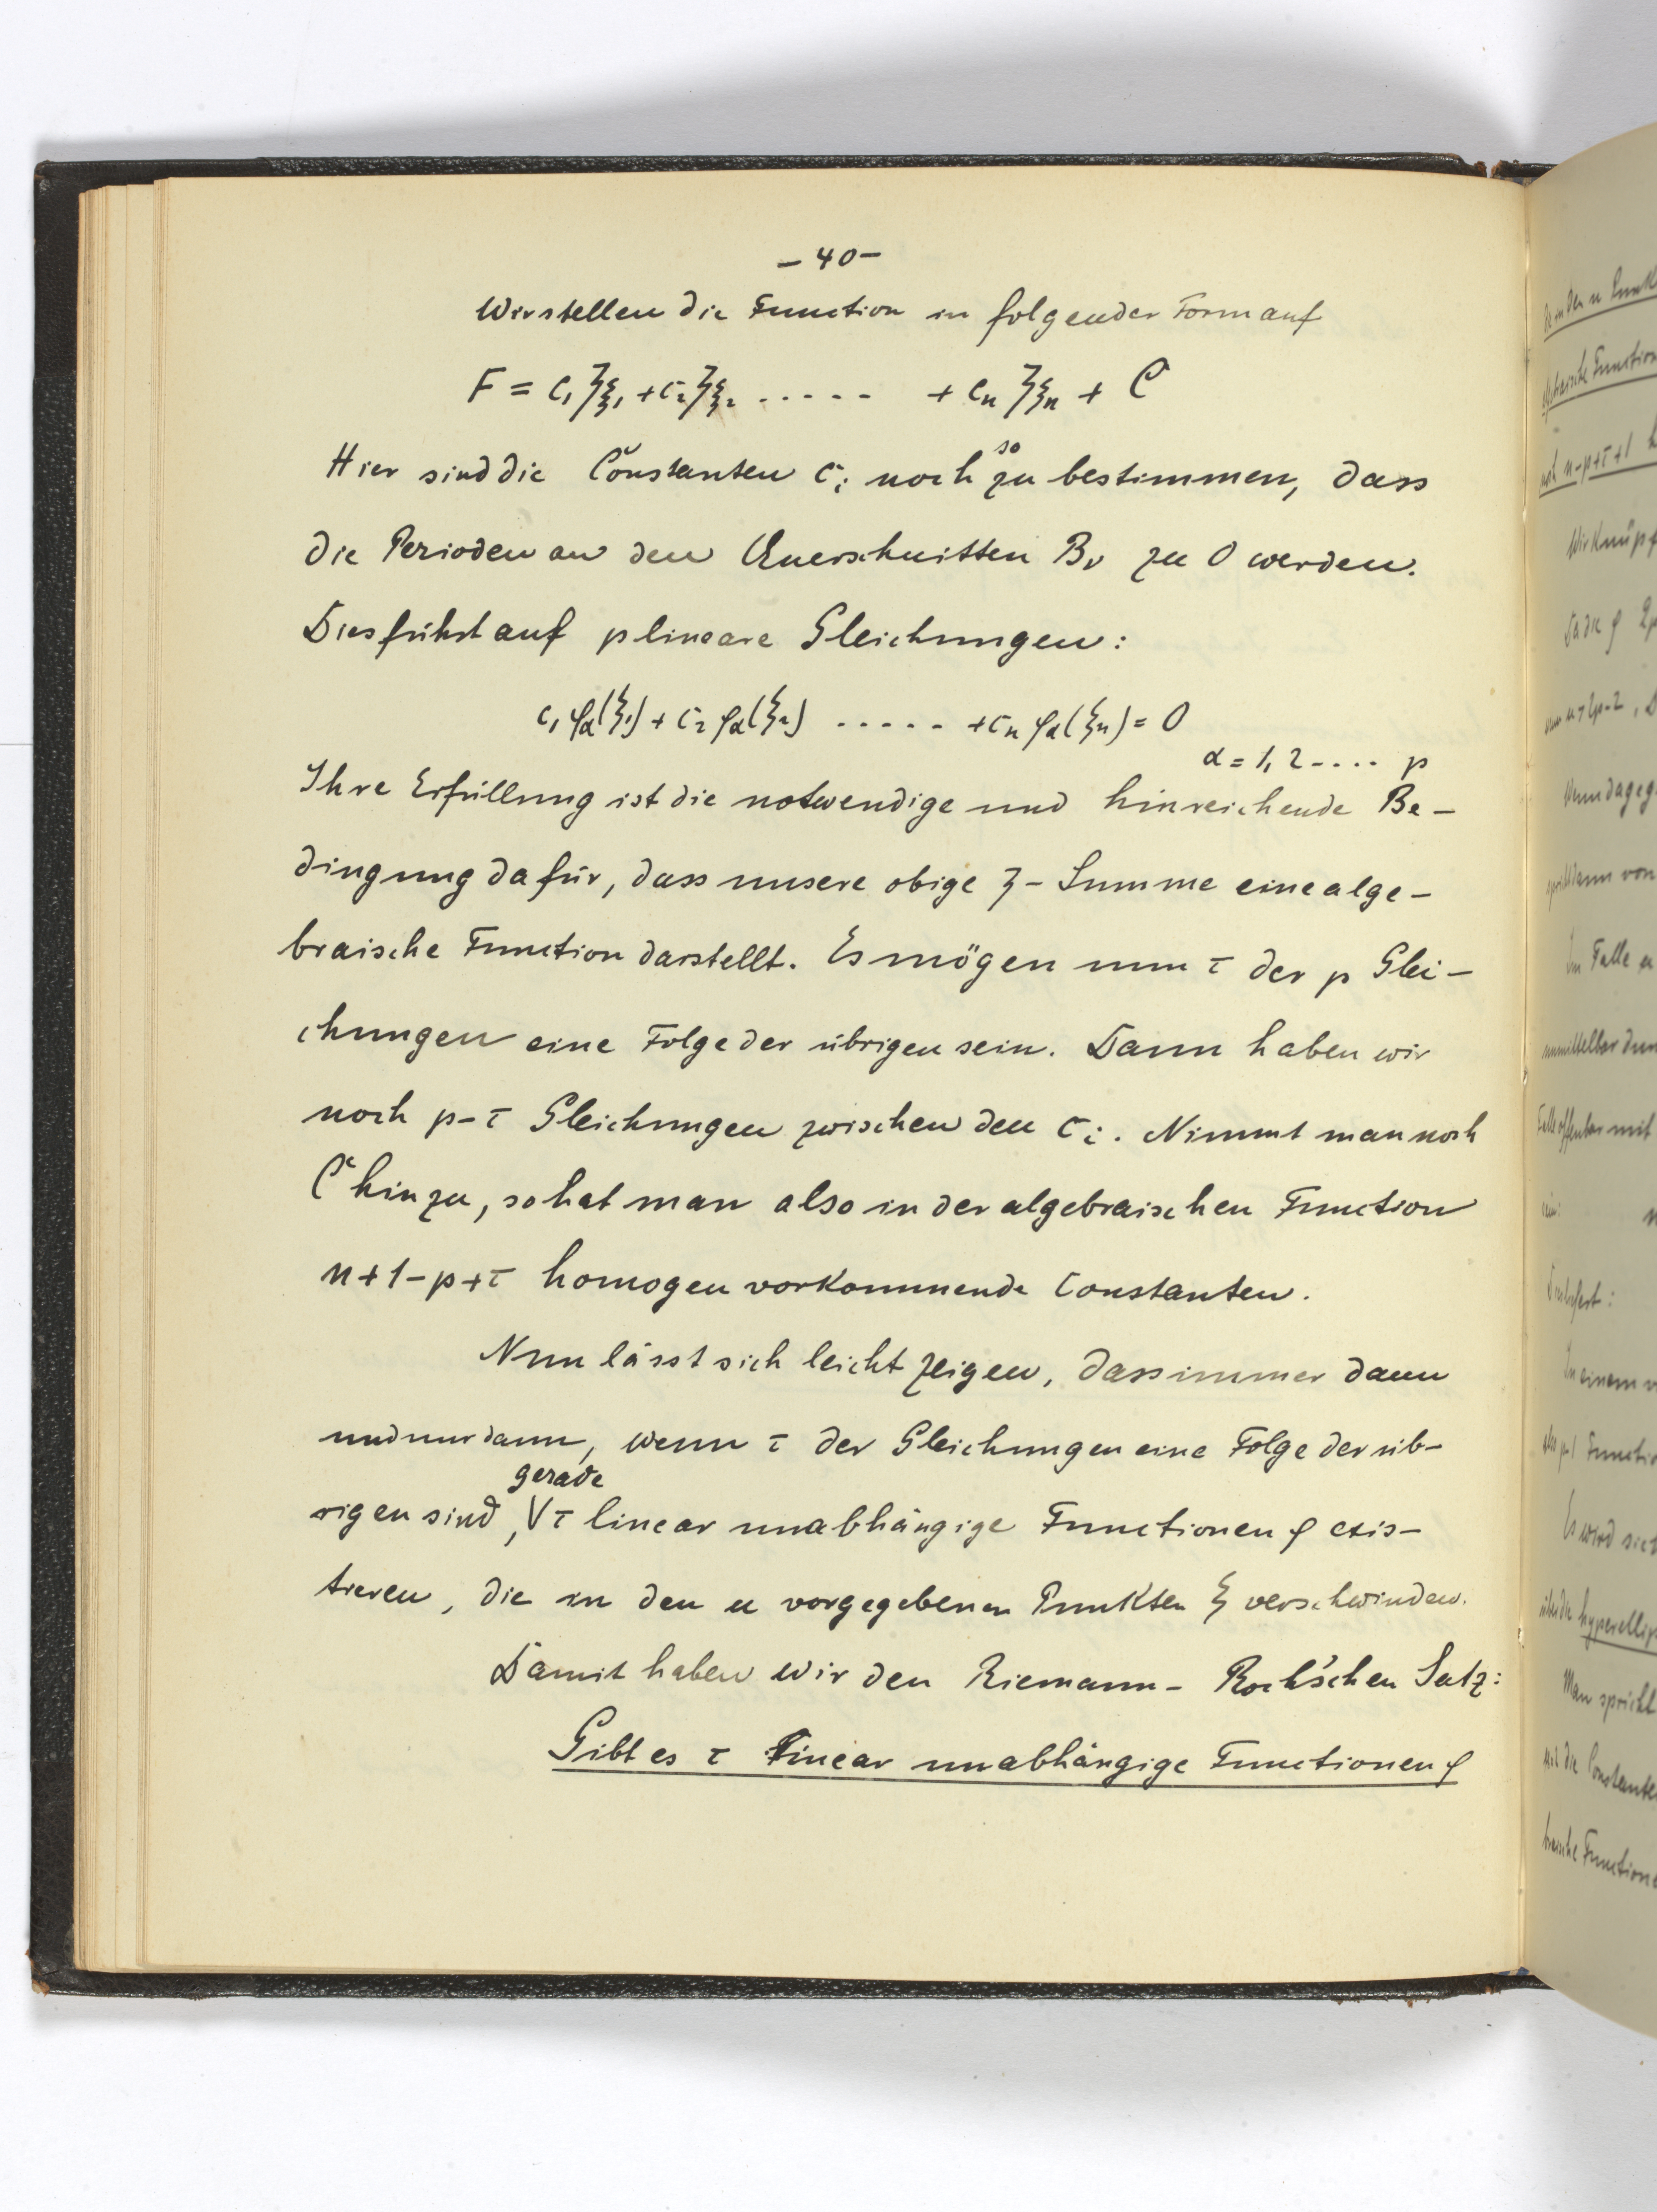 – 40 –
Wir stellen die Function in folgender Form auf
F = c₁ ζξ₁ + c₂ ζξ₂ ..... + cₙ ζξₙ + C
Hier sind die Constanten cᵢ noch so zu bestimmen, dass
die Perioden an den Querschnitten Bᵥ zu 0 werden.
Dies führt auf p lineare Gleichungen:
c₁ φα(ξ₁) + c₂ φα(ξ₂) ..... + cₙ φα(ξₙ) = 0
α = 1, 2 .... p
Ihre Erfüllung ist die notwendige und hinreichende Be–
dingung dafür, dass unsere obige ζ – Summe eine alge–
braische Function darstellt. Es mögen nun τ der p Glei–
chungen eine Folge der übrigen sein. Dann haben wir
noch p–τ Gleichungen zwischen den cᵢ. Nimmt man noch
C hinzu, so hat man also in der algebraischen Function
n+1–p+τ homogen vorkommende Constanten.
Nun lässt sich leicht zeigen, dass immer dann
und nur dann, wenn τ der Gleichungen eine Folge der üb–
rigen sind, gerade τ linear unabhängige Functionen φ exis–
tieren, die in den n vorgegebenen Punkten ξ verschwinden.
Damit haben wir den Riemann – Roch'schen Satz:
Gibt es τ linear unabhängige Functionen φ